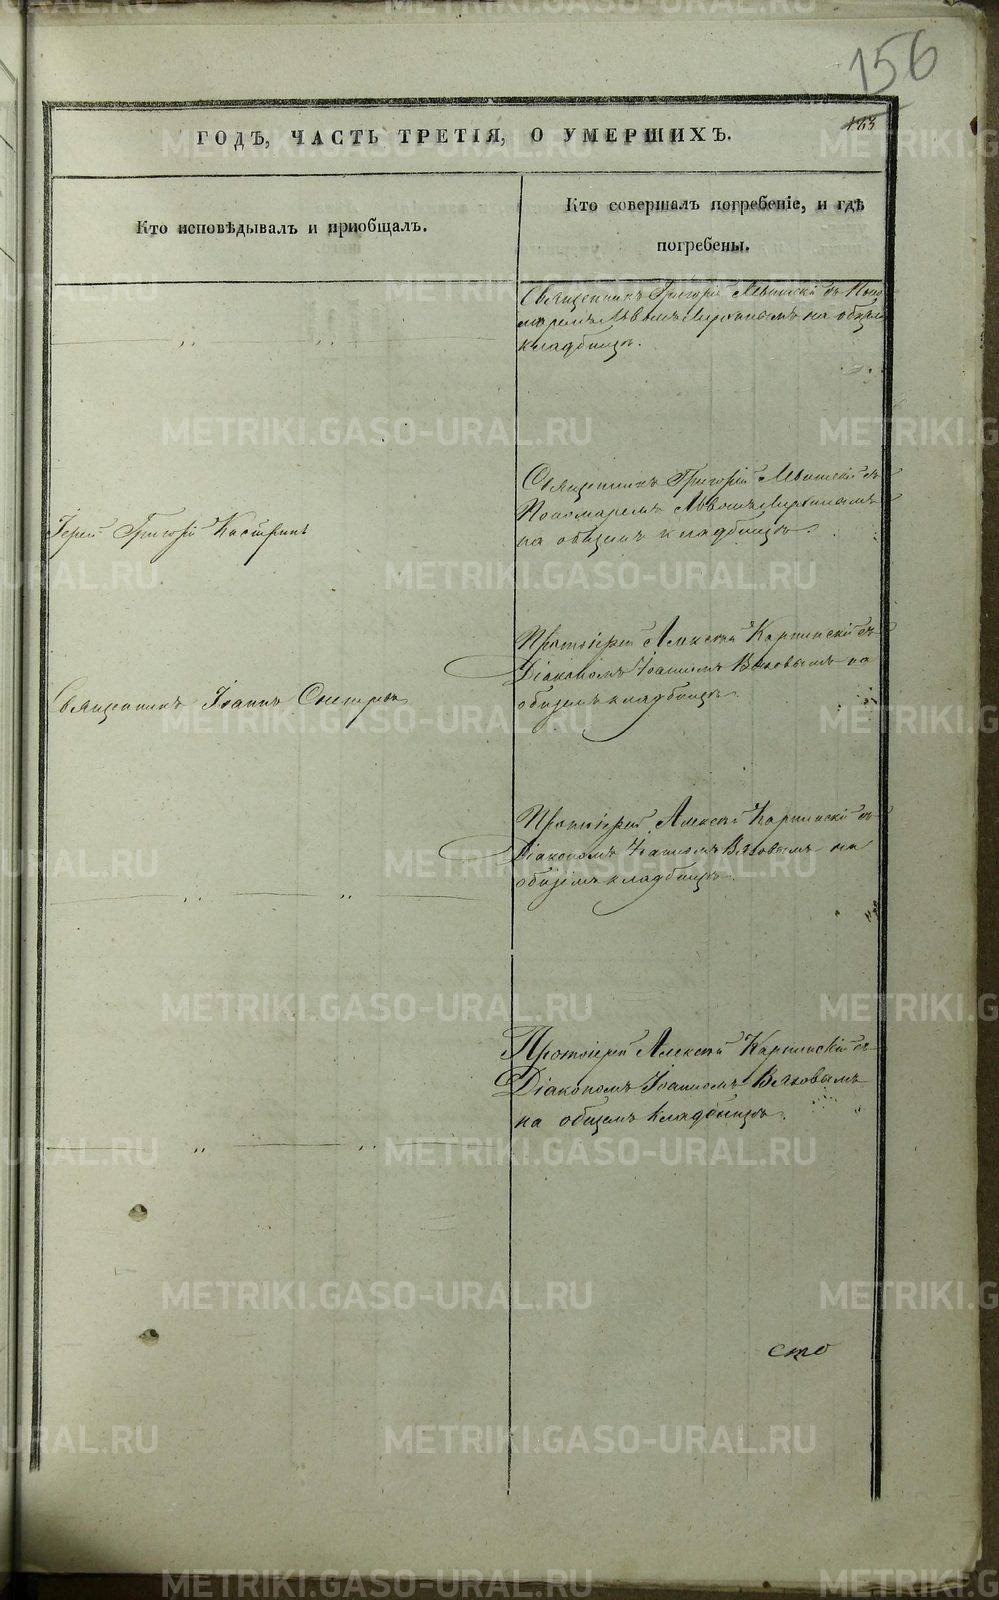 156
183
ГОДѢ, ЧАСТЬ ТРЕТІЯ, О УМЕРШИХЪ.
Кто исповѣдывалъ и приобщалъ.
Кто совершалъ погребеніе, и гдѣ
погребены.
Священникъ Григорій Левитскій съ Поно
маремъ Львомъ на общемъ
кладбищѣ.
Священникъ Григорій Левитскій съ
Пономаремъ Львомъ
на общемъ кладбищѣ.
Іерей Григорій Кастринъ
Протоіерей Алексѣй Карпинскій съ
Діакономъ Іоанномъ Вяховымъ на
общемъ кладбищѣ.
Священникъ Іоаннъ
Протоіерей Алексѣй Карпинскій съ
Діакономъ Іоанномъ Вяховымъ на
общемъ кладбищѣ.
Протоіерей Алексѣй Карпинскій съ
Діакономъ Іоанномъ Вяховымъ
на общемъ кладбищѣ.
сто
METRIKI.GASO-URAL.RU